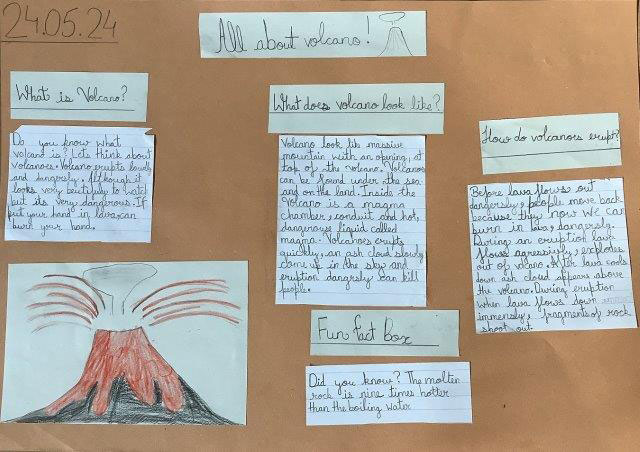 24.05.24
All about volcano!
What is Volcano?
Do you know what
volcano is? Let's think about
volcanoes. Volcano erupts loudly
and dangersly. Although it
looks very beutifuly to watch
but its very dangerous. If
put your hand in lava, can
burn your hand.
What does volcano look like?
Volcano look lik massive
mountain with an opening, at
top of the volcano. Volcanoes
can be found under the sea
and on the land. Inside the
Volcano is a magma
chamber, conduit and hot,
dangerous liquid called
magma. Volcanoes erupts
quickly, an ash cloud slowly
come up in the sky and
eruption dangrsly can kill
people.
Fun fact box
Did you know? The molten
rock is nine times hotter
than the boiling water
How do volcanoes erupt?
Before lava flows out
dangersly, people move back
because they now we can
burn in lava, dangersly.
During an eruption lava
flows agressively, explodes
out of volcano. After lava cools
down ash cloud appears above
the volcano. During eruption
when lava flows down
immensely, fragments of rock
shoot out.